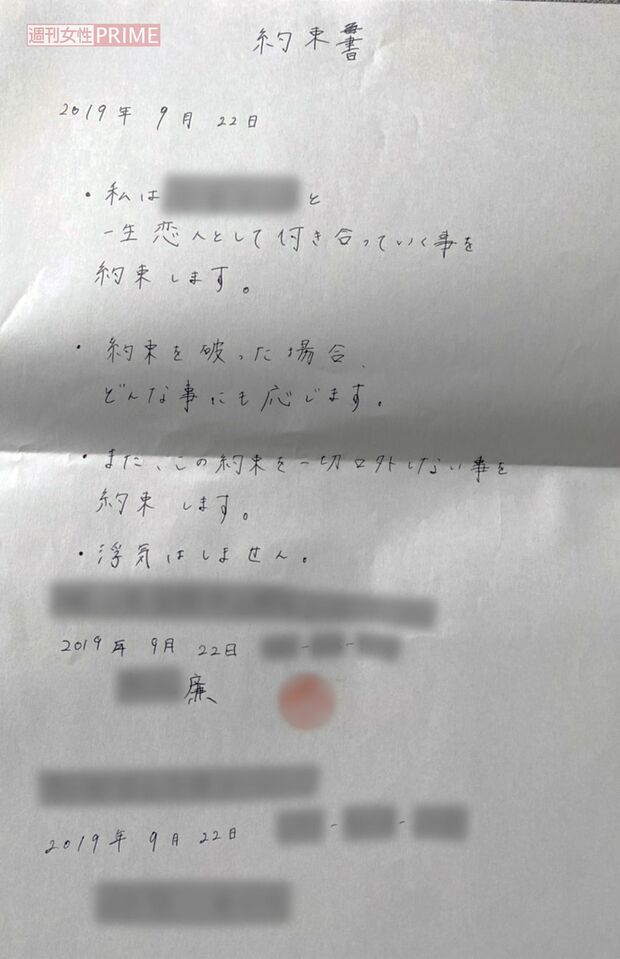 週刊女性PRIME
約束書
2019年 9月 22日
・私は と
一生恋人として付き合っていく事を
約束します。
・約束を破った場合、
どんな事にも応じます。
・また、この約束を一切口外しない事を
約束します。
・浮気はしません。
2019年 9月 22日 - -
廉
2019年 9月 22日 - -